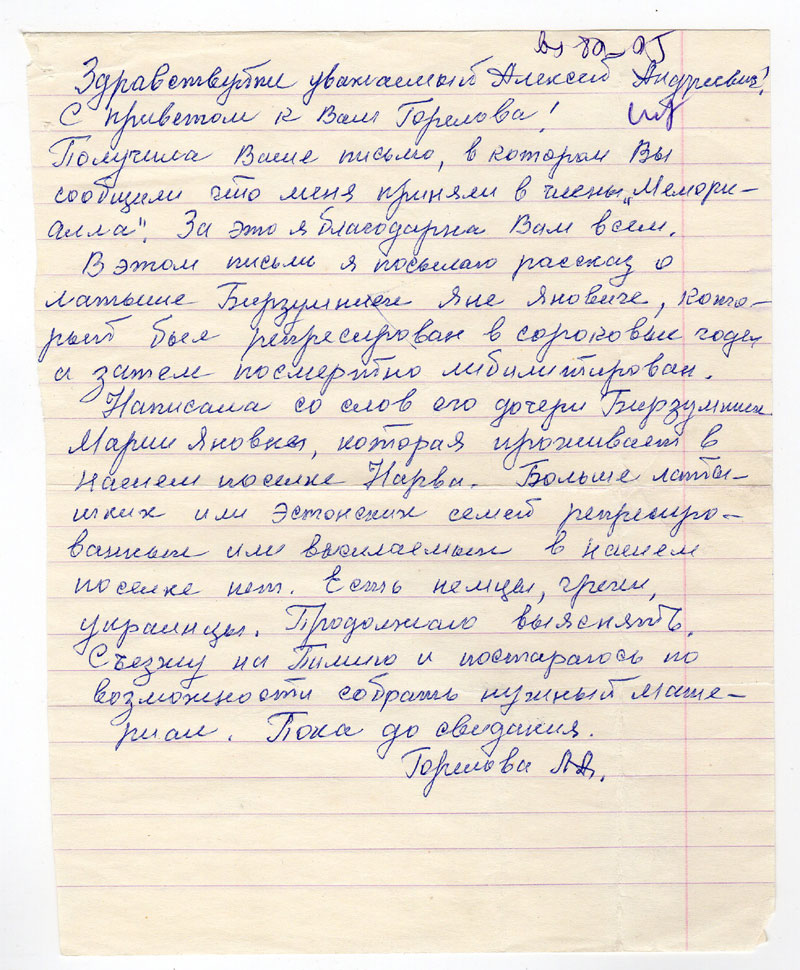 Здравствуйте уважаемый Алексей Андреевич!
С приветом к Вам Горелова!
Получила Ваше письмо, в котором Вы
сообщили что меня приняли в члены „Мемори-
алла". За это я благодарна Вам всем.
В этом письме я посылаю рассказ о
латыше Бирзумниек Яне Яновиче, кото-
рый был репресирован в сороковых годах
и затем посмертно либилитирован.
Написала со слов его дочери Бирзумниек
Марии Яновны, которая проживает в
нашем поселке Нарва. Больше латы-
шких или эстонских семей репресиро-
ванных или высылаемых в нашем
поселке нет. Есть немцы, греки,
украинцы. Продолжаю выяснять.
Съезжу на Пимию и постараюсь по
возможности собрать нужный мате-
риал. Пока до свидания.
Горелова А.А.